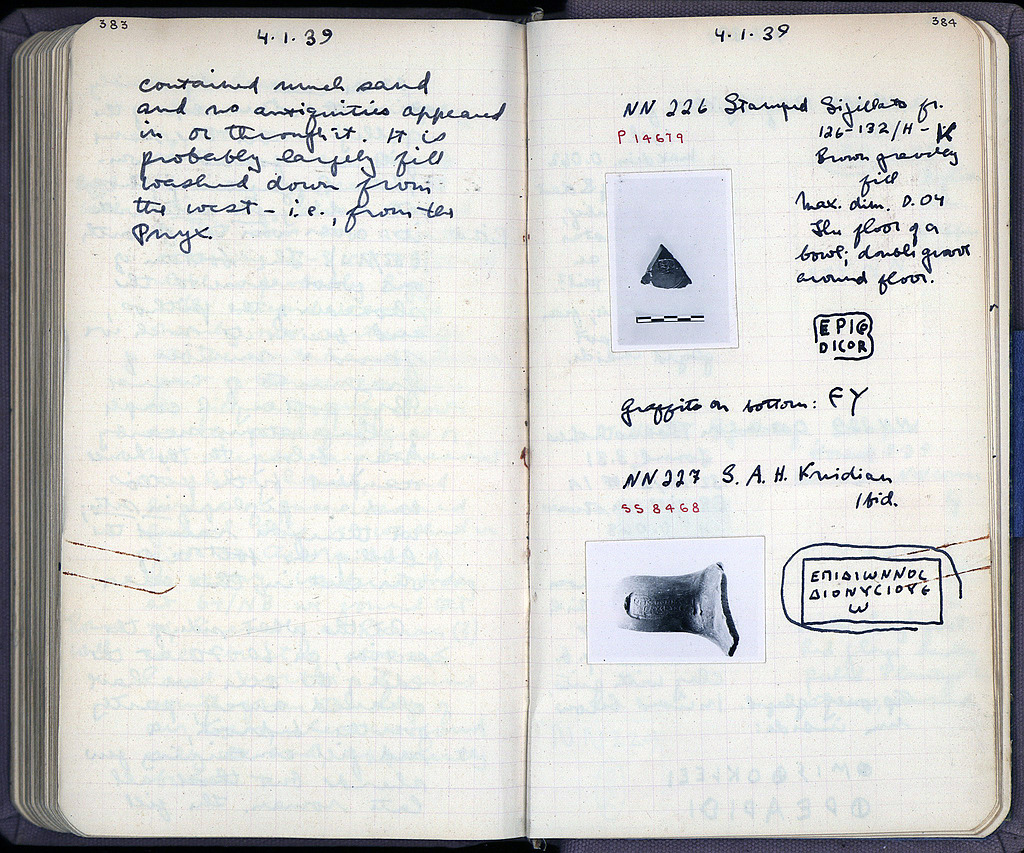 383
4.1.39
contained much sand
and no antiquities appeared
in or through it. It is
probably largely fill
washed down from
the west – i.e., from the
Pnyx.
384
4.1.39
NN 226 Stamped Sigillata fr.
P 14679
126-132/H-
Brown gravelly
fill
Max. dim. 0.04
The floor of a
bowl; double groove
around floor.
EPIC
DICOR
Graffito on bottom: FY
NN 227 S. A. H. Knidian
SS 8468
Ibid.
ΕΠΙΔΙΩΝΝΟC
ΔΙΟΝΥCΙΟΥ
Ѡ